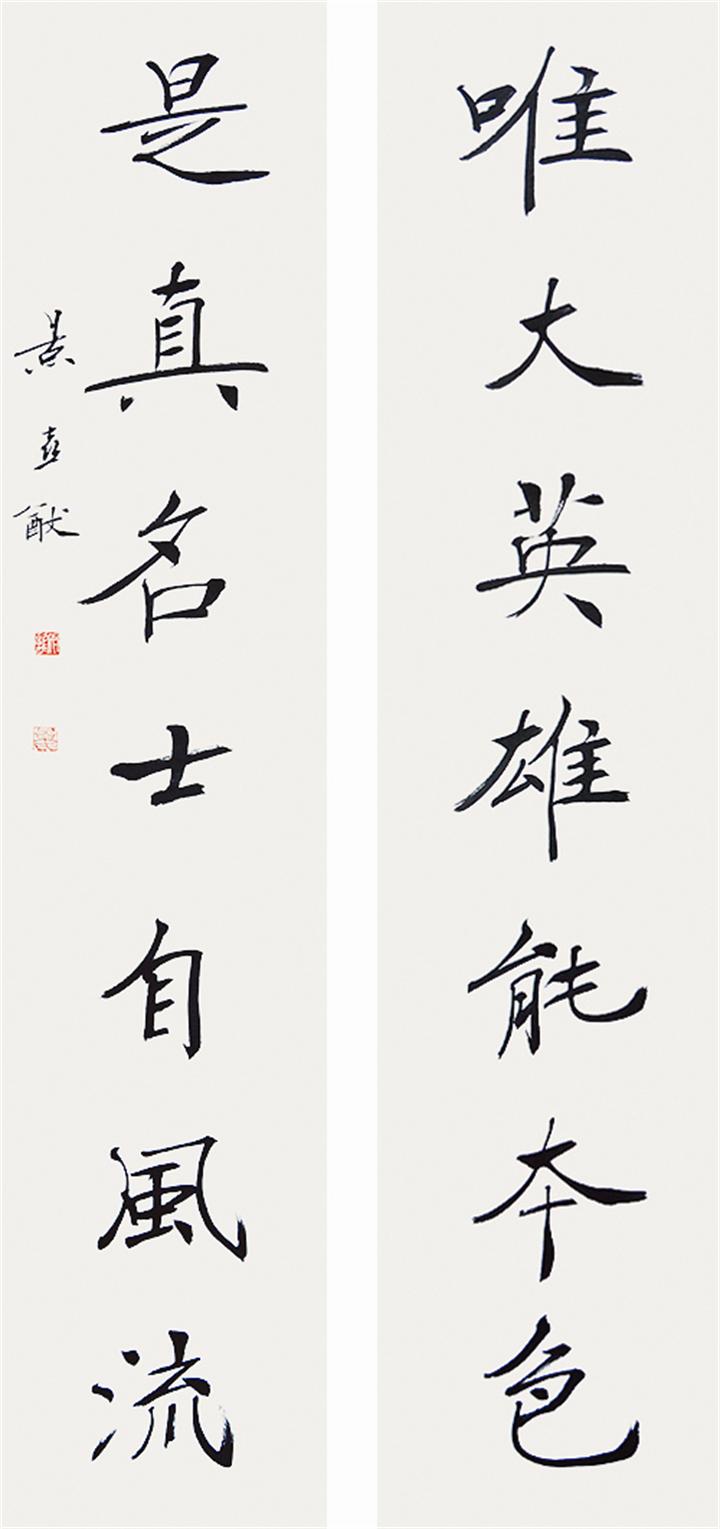 唯大英雄能本色
是真名士自風流